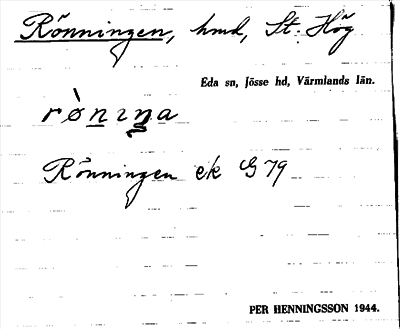 Rönningen, hmd, St. Hög
Eda sn, Jösse hd, Värmlands län.
rø̀nıŋa
Rönningen ek G 79
PER HENNINGSSON 1944.